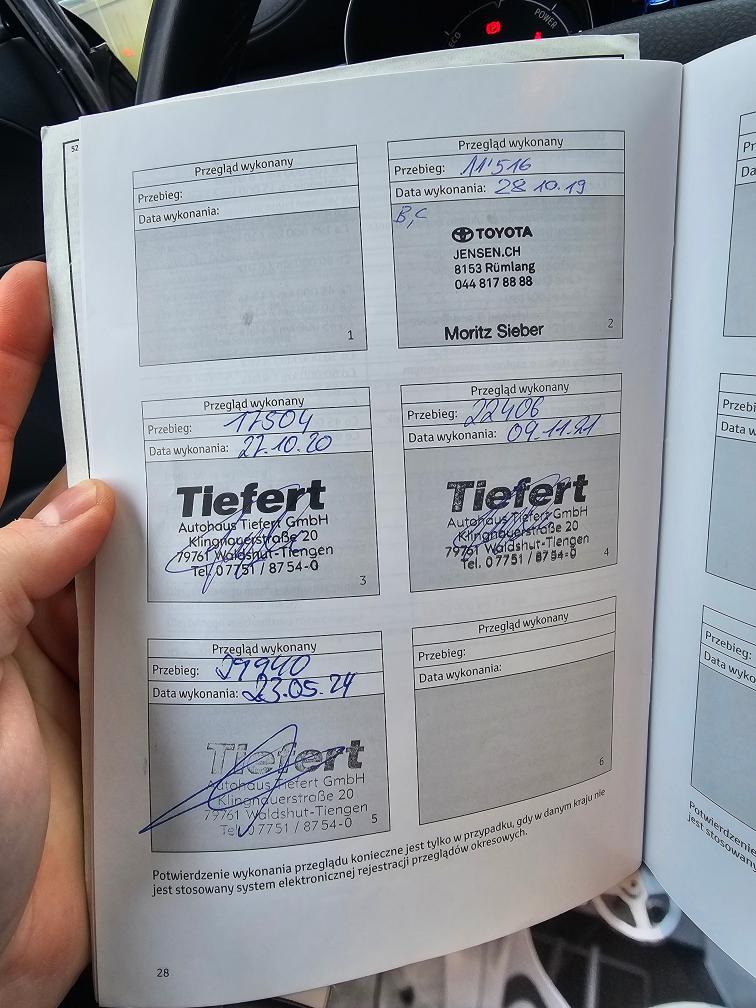 ECO
POWER
52
Przegląd wykonany
Przebieg:
Data wykonania:
1
Przegląd wykonany
Przebieg: 11'516
Data wykonania: 28.10.19
B,C
TOYOTA
JENSEN.CH
8153 Rümlang
044 817 88 88
Moritz Sieber
2
Przegląd wykonany
Przebieg: 17504
Data wykonania: 27.10.20
Tiefert
Autohaus Tiefert GmbH
Klingnauerstraße 20
79761 Waldshut-Tiengen
Tel. 0 77 51 / 87 54-0
3
Przegląd wykonany
Przebieg: 22406
Data wykonania: 09.11.21
Tiefert
Autohaus Tiefert GmbH
Klingnauerstraße 20
79761 Waldshut-Tiengen
Tel. 0 77 51 / 87 54-0
4
Przegląd wykonany
Przebieg:
Data wykonania: 23.05.24
Tiefert
Autohaus Tiefert GmbH
Klingnauerstraße 20
79761 Waldshut-Tiengen
Tel. 0 77 51 / 87 54-0
5
Przegląd wykonany
Przebieg:
Data wykonania:
6
Potwierdzenie wykonania przeglądu konieczne jest tylko w przypadku, gdy w danym kraju nie
jest stosowany system elektronicznej rejestracji przeglądów okresowych.
28
Przebie
Przebieg:
Data wyko
Potwierdzenie
jest stosowany